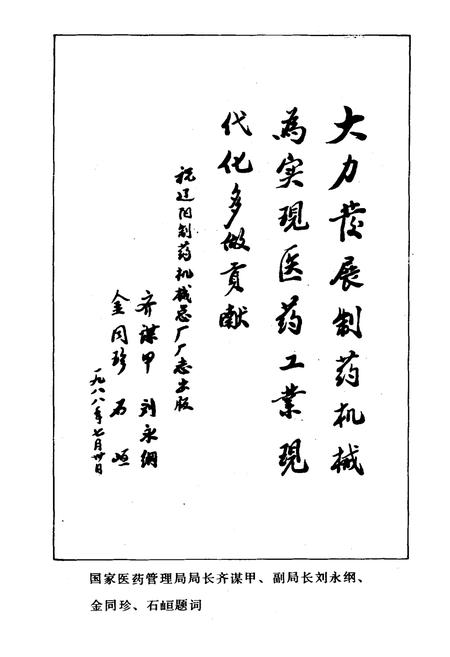 大力發展制药机械
為实现医药工業现
代化多做貢献
祝辽阳制药机械总厂厂志出版
齐谋甲 刘永纲
金同珍 石𡸴
一九八八年七月廿日
国家医药管理局局长齐谋甲、副局长刘永纲、
金同珍、石𡸴题词